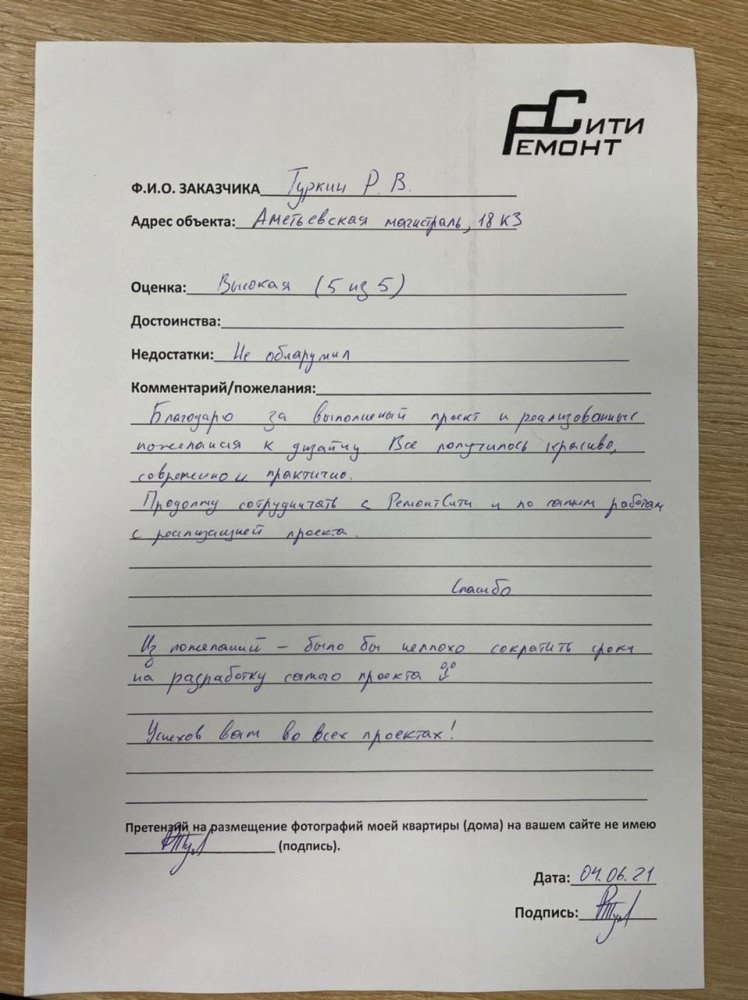 СИТИ
РЕМОНТ
Ф.И.О. ЗАКАЗЧИКА Туркин Р. В.
Адрес объекта: Аметьевская магистраль, 18 к3
Оценка: Высокая (5 из 5)
Достоинства:
Недостатки: Не обнаружил
Комментарий/пожелания:
Благодарю за выполненый проект и реализованные
пожелания к дизайну. Все получилось красиво,
современно и практично.
Продолжу сотрудничать с РемонтСити и по самим работам
с реализацией проекта.
Спасибо
Из пожеланий – было бы неплохо сократить сроки
на разработку самого проекта
Успехов вам во всех проектах!
Претензий на размещение фотографий моей квартиры (дома) на вашем сайте не имею
(подпись).
Дата: 04.06.21
Подпись: